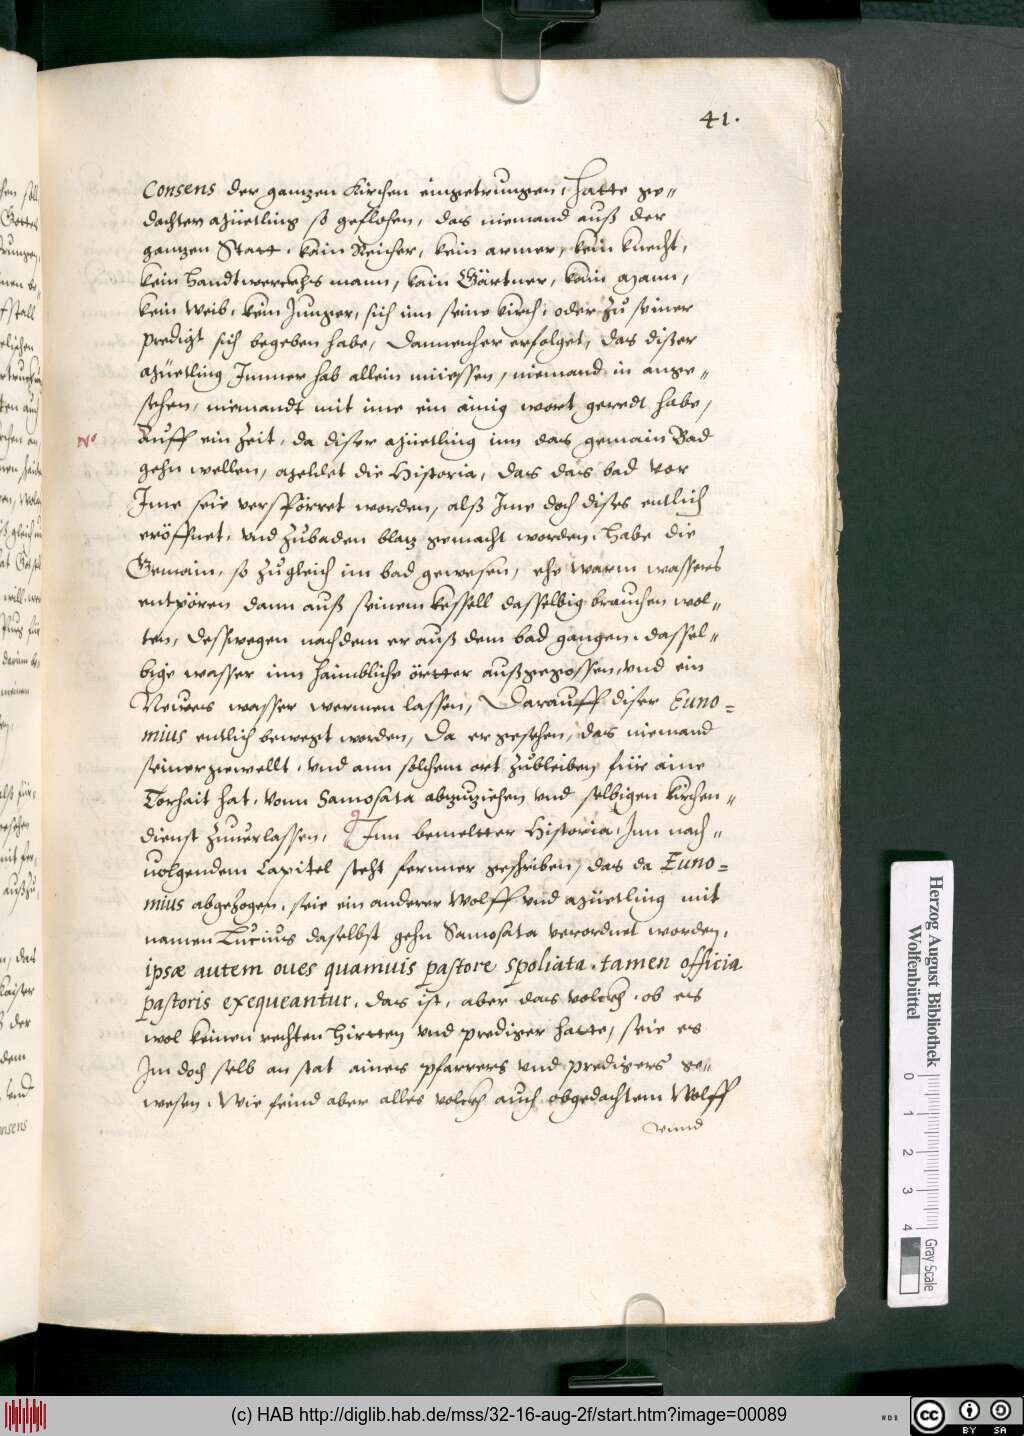 41.
Consens der ganzen Kirchen eingetrungen, hatte ge„
dachter Müetling so geflohen, das niemand auß der
ganzen Statt, kain Reicher, kein armer, kein knecht,
kein Handtwerckhs mann, kain Gärtner, kain Mann,
kein weib, kein Junger, sich inn seine kirch, oder zu seiner
predigt sich begeben habe, Dannenher erfolget, das diser
Müetling Immer hab allein müessen, niemand in ange„
sehen, niemandt mit ime ein ainig wort geredt habe,
Auff ein Zeit, da diser Müetling inn das gemain Bad
gehn wellen, Meldet die Historia, das das bad vor
Ime seie verspörret worden, alß Ime doch dises entlich
eröffnet, vnd zubaden blatz gemacht worden, Habe die
Gemain, so zugleich im bad gewesen, ehe warm wassers
entpören dann auß seinem kessell dasselbig brauchen wol„
ten, Desswegen nachdem er auß dem bad gangen, dassel„
bige wasser inn haimbliche örtter außgegossen, vnd ein
Neues wasser wermen lassen, Darauff diser Euno=
mius entlich bewegt worden, Da er gesehen, das niemand
seiner gewellt, vnd ann solchem ort zubleiben für aine
Torhait hat, vonn Samosata abzuziehen vnd selbigen kirchen„
dienst zuuerlassen, Inn bemeltter Historia, Inn nach„
uolgendem Capitel steht ferrner geschriben, das da Euno=
mius abgezogen, seie ein anderer Wolff vnd Müetling mit
namen Lucius daselbst gehn Samosata verordnet worden,
ipsæ autem oues quamuis pastore spoliata, tamen officia
pastoris exequeantur, das ist, aber das volckh, ob es
wol keinen rechten Hirtten vnd prediger hatte, seie es
Im doch selb an stat aines pfarrers vnd predigers ge„
wesen, Wie feind aber alles volckh auch obgedachtem Wolff
vnnd
Herzog August Bibliothek
Wolfenbüttel
0 1 2 3 4
Gray Scale
(c) HAB http://diglib.hab.de/mss/32-16-aug-2f/start.htm?image=00089
WDB
cc
BY SA